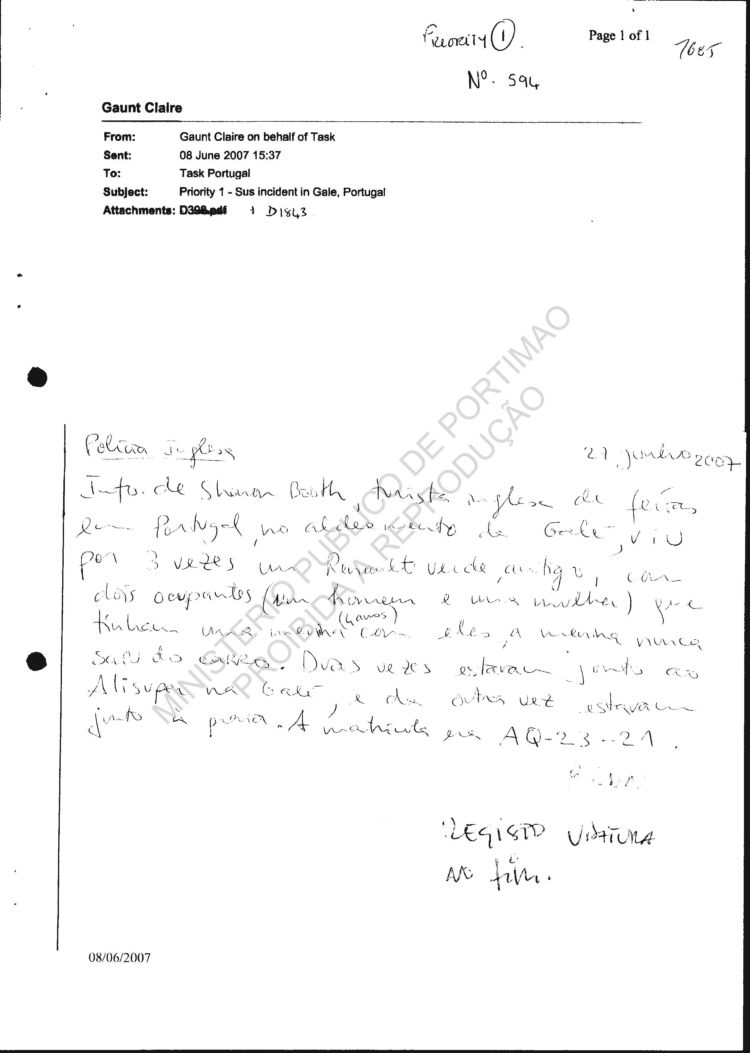 Priority 1.
Page 1 of 1
7685
Nº. 594
Gaunt Claire
From: Gaunt Claire on behalf of Task
Sent: 08 June 2007 15:37
To: Task Portugal
Subject: Priority 1 - Sus incident in Gale, Portugal
Attachments: D398.pdf 1 D1843
MINISTERIO PUBLICO DE PORTIMAO
PROIBIDA A REPRODUÇÃO
Policia Inglesa
junho 2007
Info. de Sharon Booth, turista inglesa de ferias
em Portugal, no aldeamento da Galé, viu
por 3 vezes um Renault verde, antigo, com
dois ocupantes (um homem e uma mulher) que
tinham uma menina (4 anos) com eles, a menina nunca
saiu do carro. Duas vezes estavam junto ao
Alisuper na Galé, e da outra vez estavam
junto à praia. A matrícula era AQ-23-21.
REGISTO VIATURA
NO fim.
08/06/2007